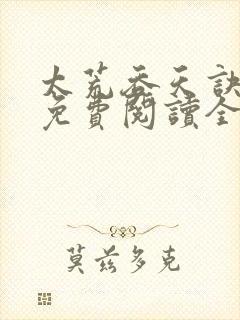 太荒吞天訣
免費閱讀全
莫兹多克